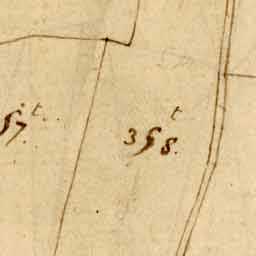 57.t
358.t